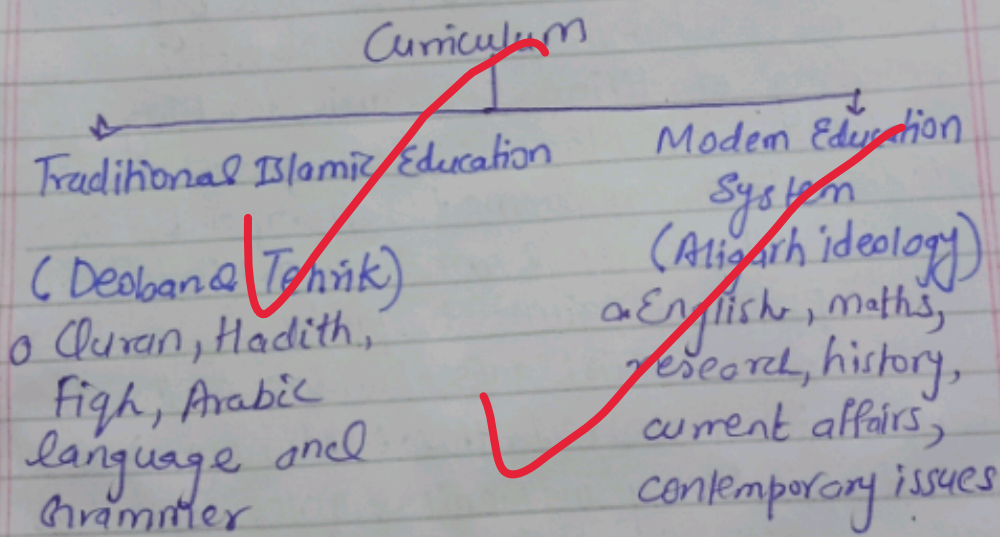 Curriculum
Traditional Islamic Education
(Deoband Tehrik)
o Quran, Hadith,
Fiqh, Arabic
language and
Grammer
Modern Education
System
(Aligarh ideology)
o English, maths,
research, history,
current affairs,
contemporary issues